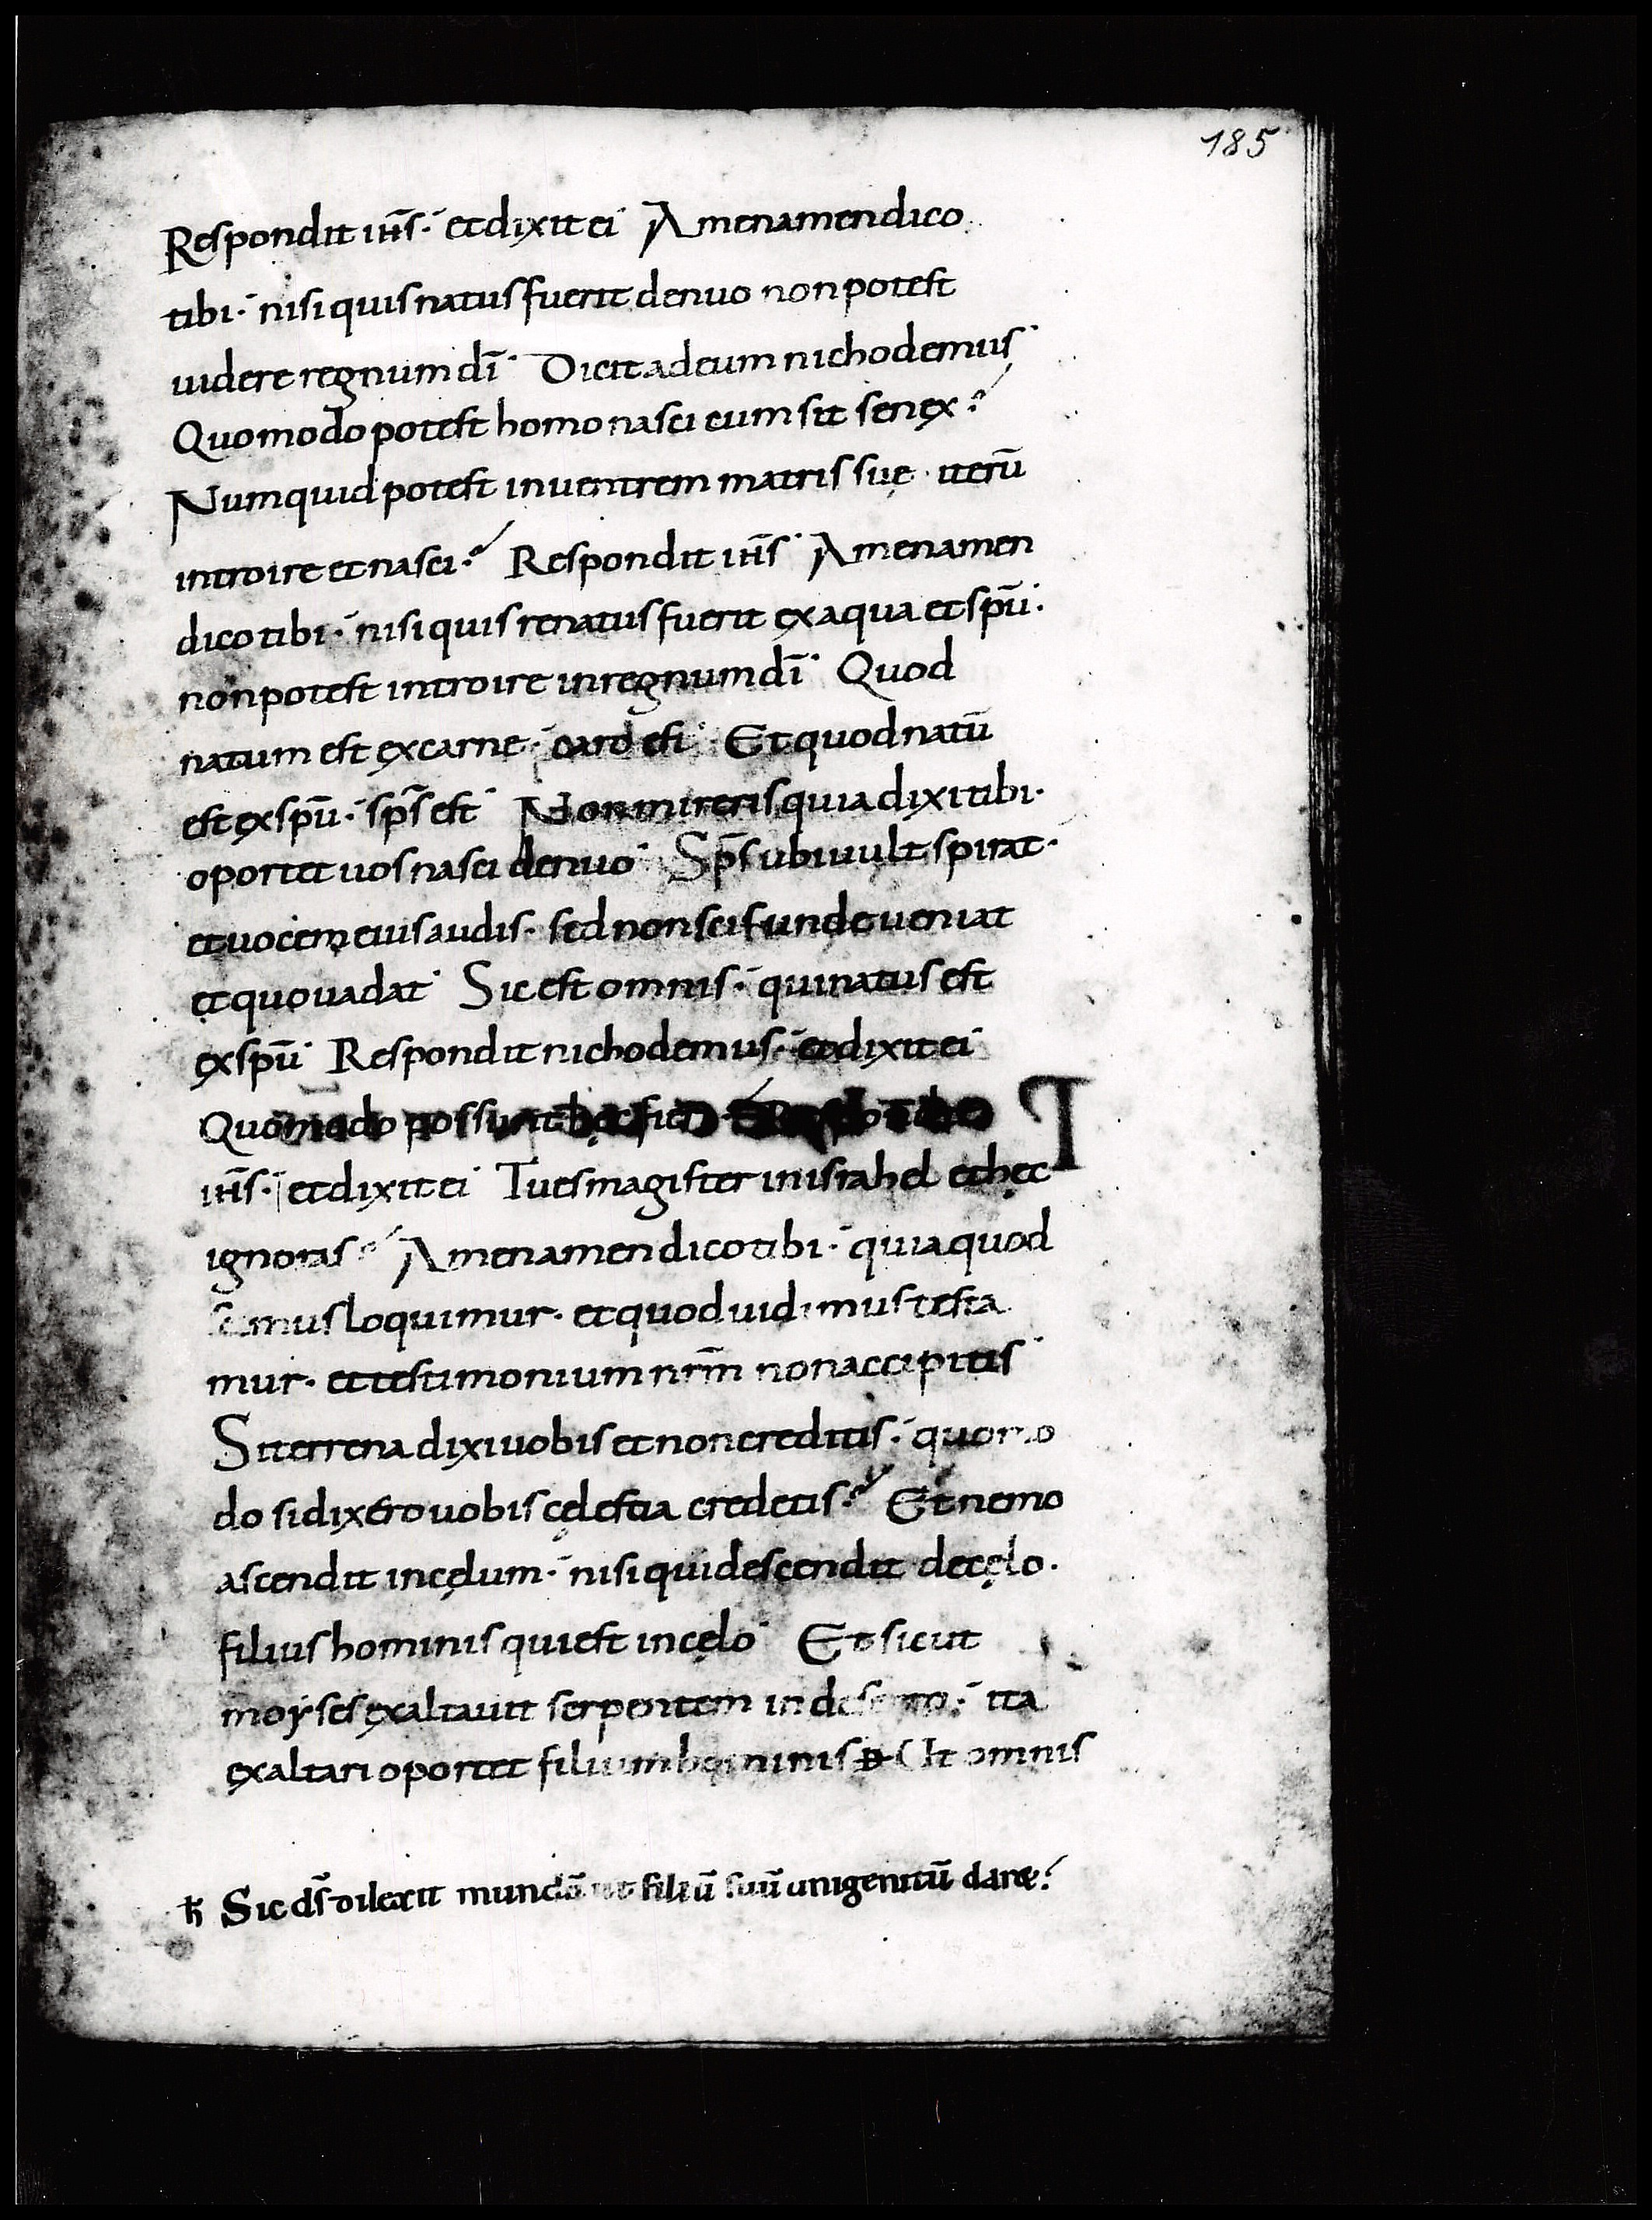 185
Respondit ihs· et dixit ei Amen amen dico
tibi· nisi quis natus fuerit denuo non potest
uidere regnum dī Dicit ad eum nichodemus
Quomodo potest homo nasci cum sit senex?
Numquid potest in uentrem matris suę iterū
introire et nasci? Respondit ihs Amen amen
dico tibi· nisi quis renatus fuerit ex aqua et spū·
non potest introire in regnum dī Quod
natum est ex carne· caro est Et quod natū
est ex spū· sps est Non mireris quia dixi tibi·
oportet uos nasci denuo Sps ubi uult spirat·
et uocem eius audis· sed non scis unde ueniat
et quo uadat Sic est omnis· qui natus est
ex spū Respondit nichodemus· et dixit ei
Quomodo possunt hęc fieri
ihs· et dixit ei Tu es magister in israhel et hęc
ignoras? Amen amen dico tibi· quia quod
scimus loquimur· et quod uidimus testa
mur· et testimonium nrm̄ non accipitis
Si terrena dixi uobis et non creditis· quomo
do si dixero uobis cęlestia credetis? Et nemo
ascendit in cęlum· nisi qui descendit de cęlo·
filius hominis qui est in cęlo Et sicut
moyses exaltauit serpentem in deserto· ita
exaltari oportet filium hominis Ut omnis
Sic ds dilexit mundū ut filiū suū unigenitū daret